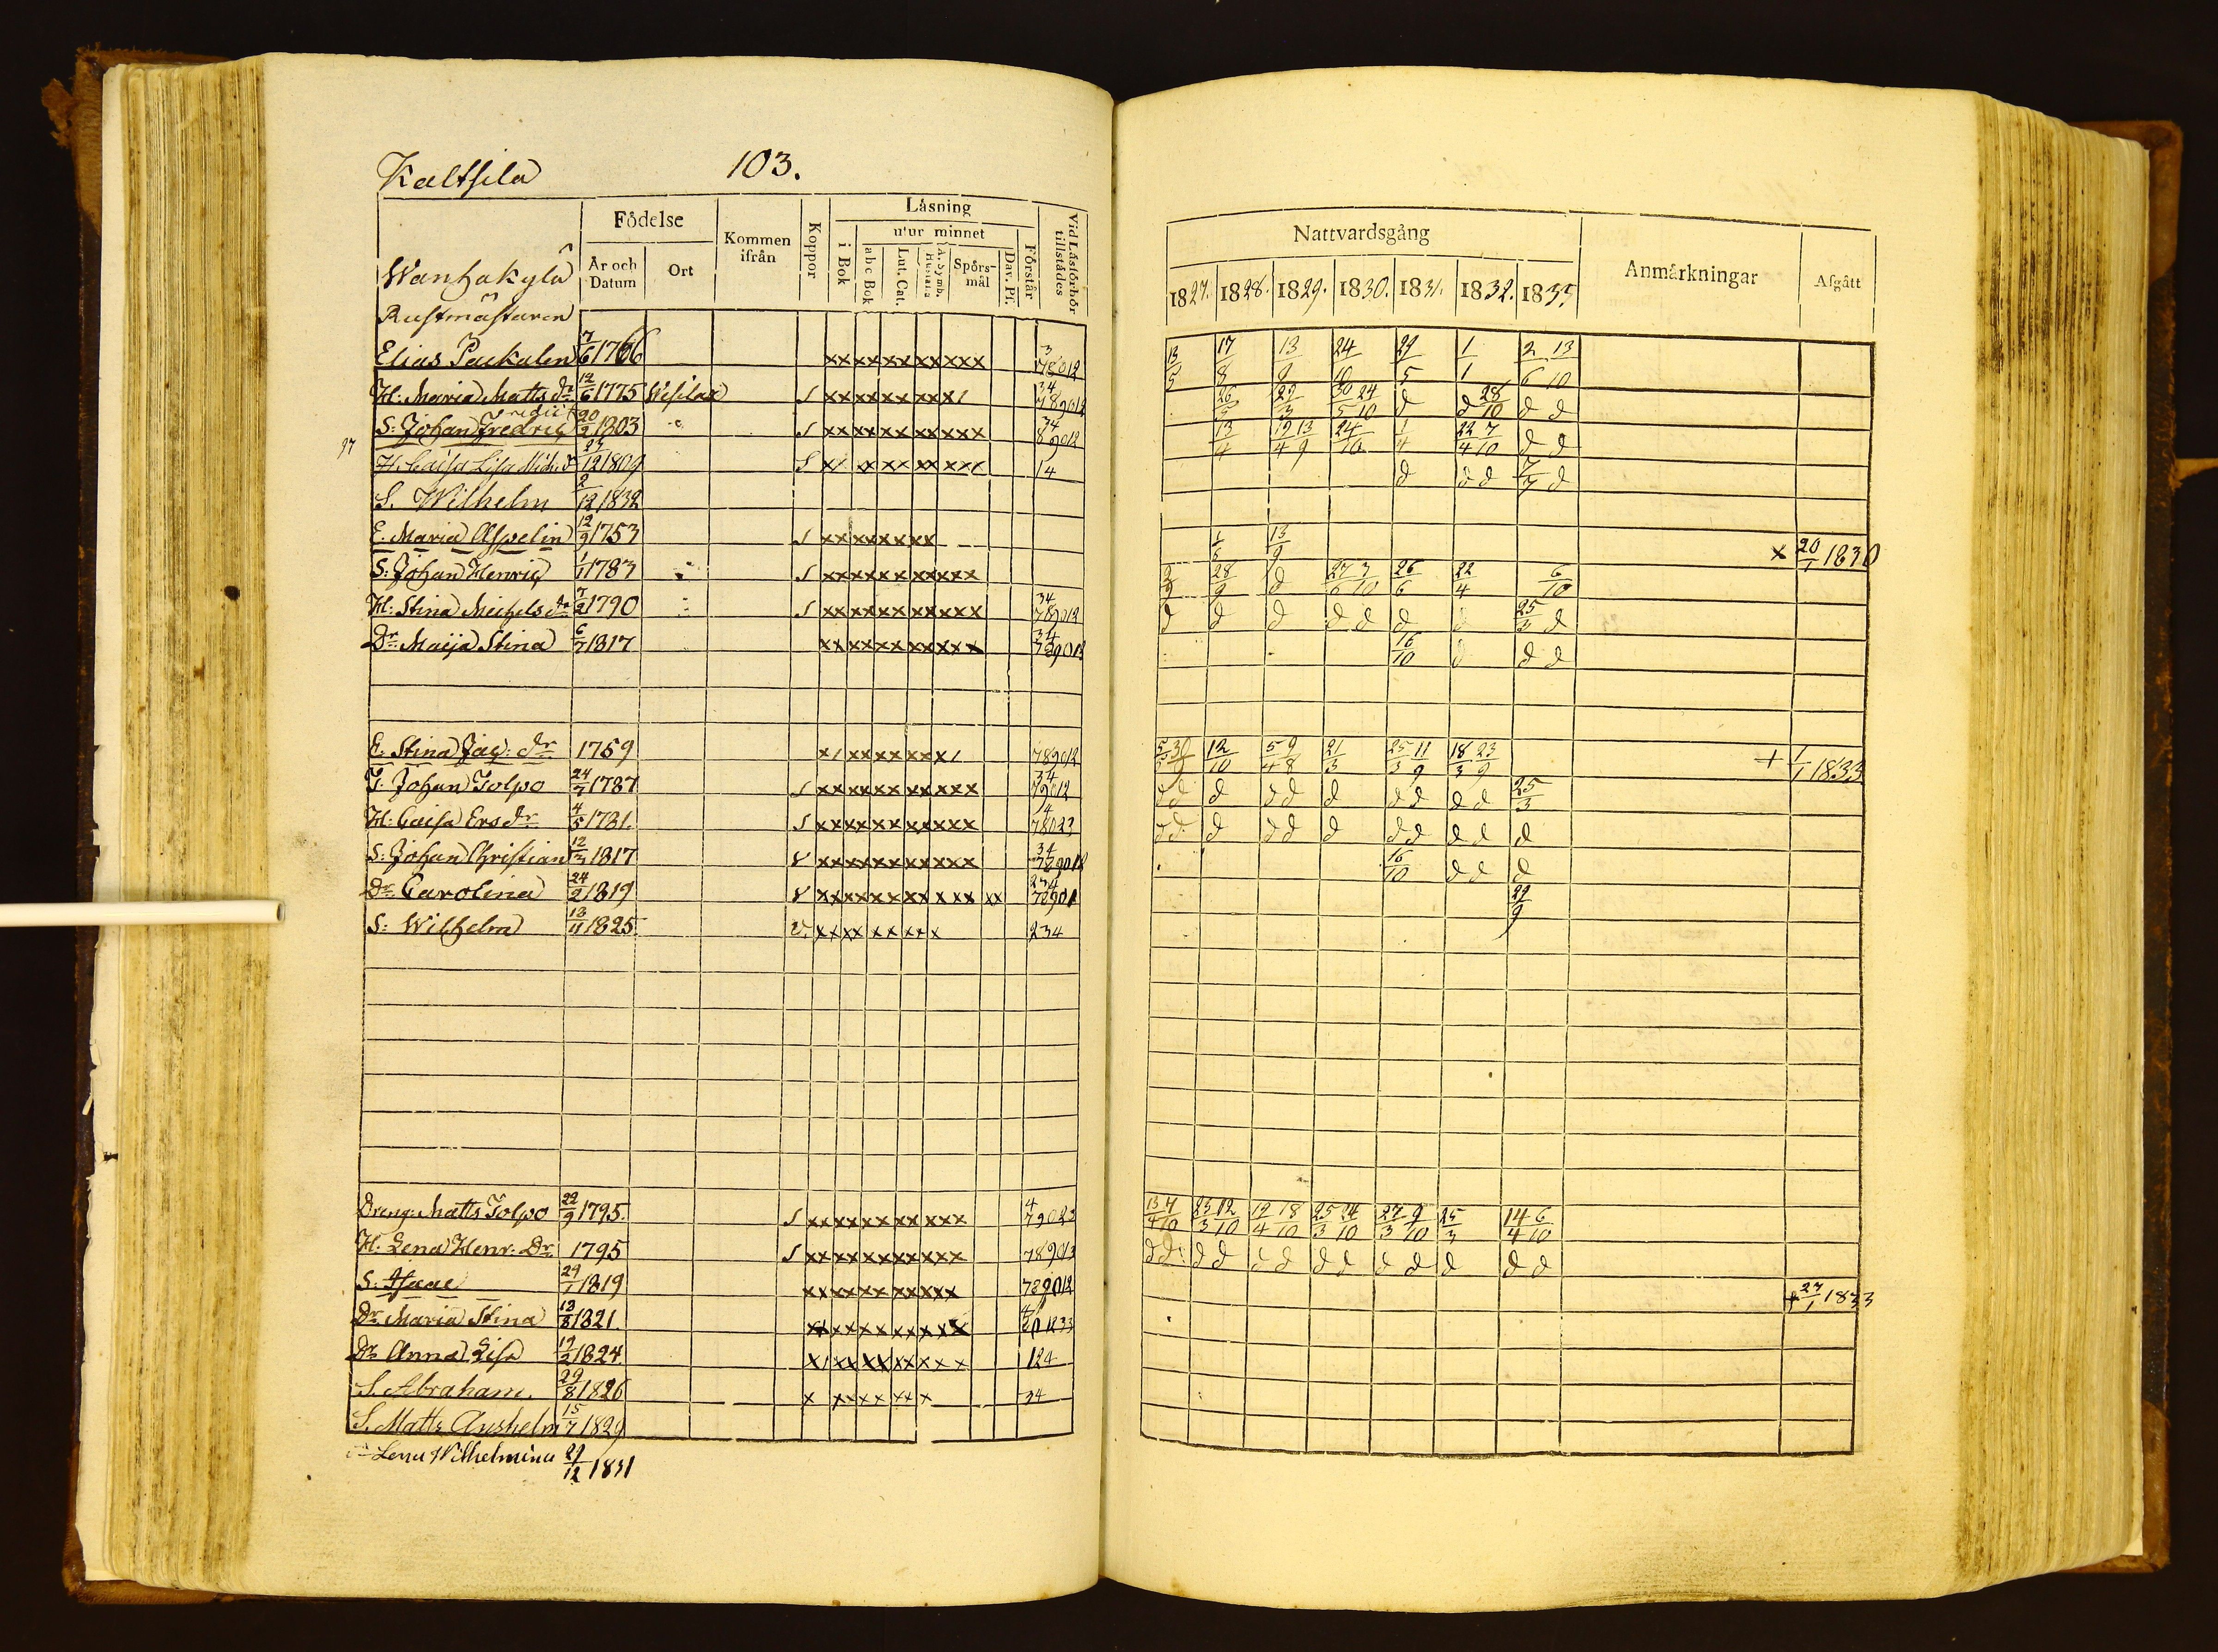 Kaltsila 103.
Wanhakylä
Rustmästaren
Födelse
År och Datum
Ort
Kommen ifrån
Koppor
Läsning
i Bok
utur minnet
abc Bok
Lut. Cat.
A. Symb. Hustafla
Spörs-mål
Dav. Ps.
Förstår
Vid Läsförhör tillstädes
Elias Packalen 7/6 1766 xx xx xx xx xxx 3 78012
H: Maria Matts dr 12/6 1775 Wesilax S xx xx xx xx x/ 34 789012
S: Johan Fredric 20/2 1803 S xx xx xx xx xxx 34 89012
H. Caisa Lisa Mich. d 25/12 1809 S x/ xx xx xx xx/ 14
S. Wilhelm 2/12 1832
E. Maria Aspelin 12/9 1753 S xx xx xx xx
S: Johan Henric 1/1 1783 S xx xx xx xx xxx
H: Stina Michels dr 7/2 1790 S xx xx xx xx xxx 34 789012
Dr Maija Stina 6/7 1817 xx xx xx xx xxx 34 789012
E. Stina Jac: dr 1759 x/ xx xx xx x/ 789012
I. Johan Tolpo 24/7 1787 S xx xx xx xx xxx 34 79012
H: Caisa Ers dr 4/5 1781. S xx xx xx xx xxx 4 78023
S: Johan Christian 12/3 1817 v xx xx xx xx xxx 34 789012
Dr Carolina 24/2 1819 v xx xx xx xx xxx xx 234 78901
S: Wilhelm 13/11 1825 v. xx xx xx xx x 234
Dreng: Matts Tolpo 22/9 1795. S xx xx xx xx xxx 4 79023
H: Lena Henr: Dr 1795 S xx xx xx xx xxx 789013
S: Isaac 29/1 1819 xx xx xx xx xxx 789012
Dr Maria Stina 13/8 1821. xx xx xx xx xxx
Dr Anna Lisa 19/2 1824 x/ xx xx xx xxx 124
S. Abraham. 29/8 1826 x xx xx xx x 34
S. Matts Anshelm 15/7 1829
Lena Wilhelmina 29/12 1831
Nattvardsgång
Anmärkningar
Afgått
1827. 1828. 1829. 1830. 1831. 1832. 1833
13/5 17/8 13/9 24/10 29/5 1/1 2/6 13/10
26/5 29/3 30/5 24/10 d d 28/10 d d
13/4 19/4 13/9 24/10 1/4 22/4 7/10 d d
d d d 7/7 d
1/6 13/9 x 20/1 1830
2/9 28/9 d 27/6 3/10 26/6 22/4 6/10
d d d d d d d 25/3 d
16/10 d d d
5/5 30/9 12/10 5/4 9/8 21/3 25/3 11/9 18/3 23/9 + 1/1 1833
d d d d d d d d d d 25/3
d d d d d d d d d d d
16/10 d d d
29/9
13/4 7/10 23/3 12/10 12/4 18/10 25/3 24/10 27/3 9/10 25/3 14/4 6/10
d d: d d d d d d d d d d d
+ 27/1 1833